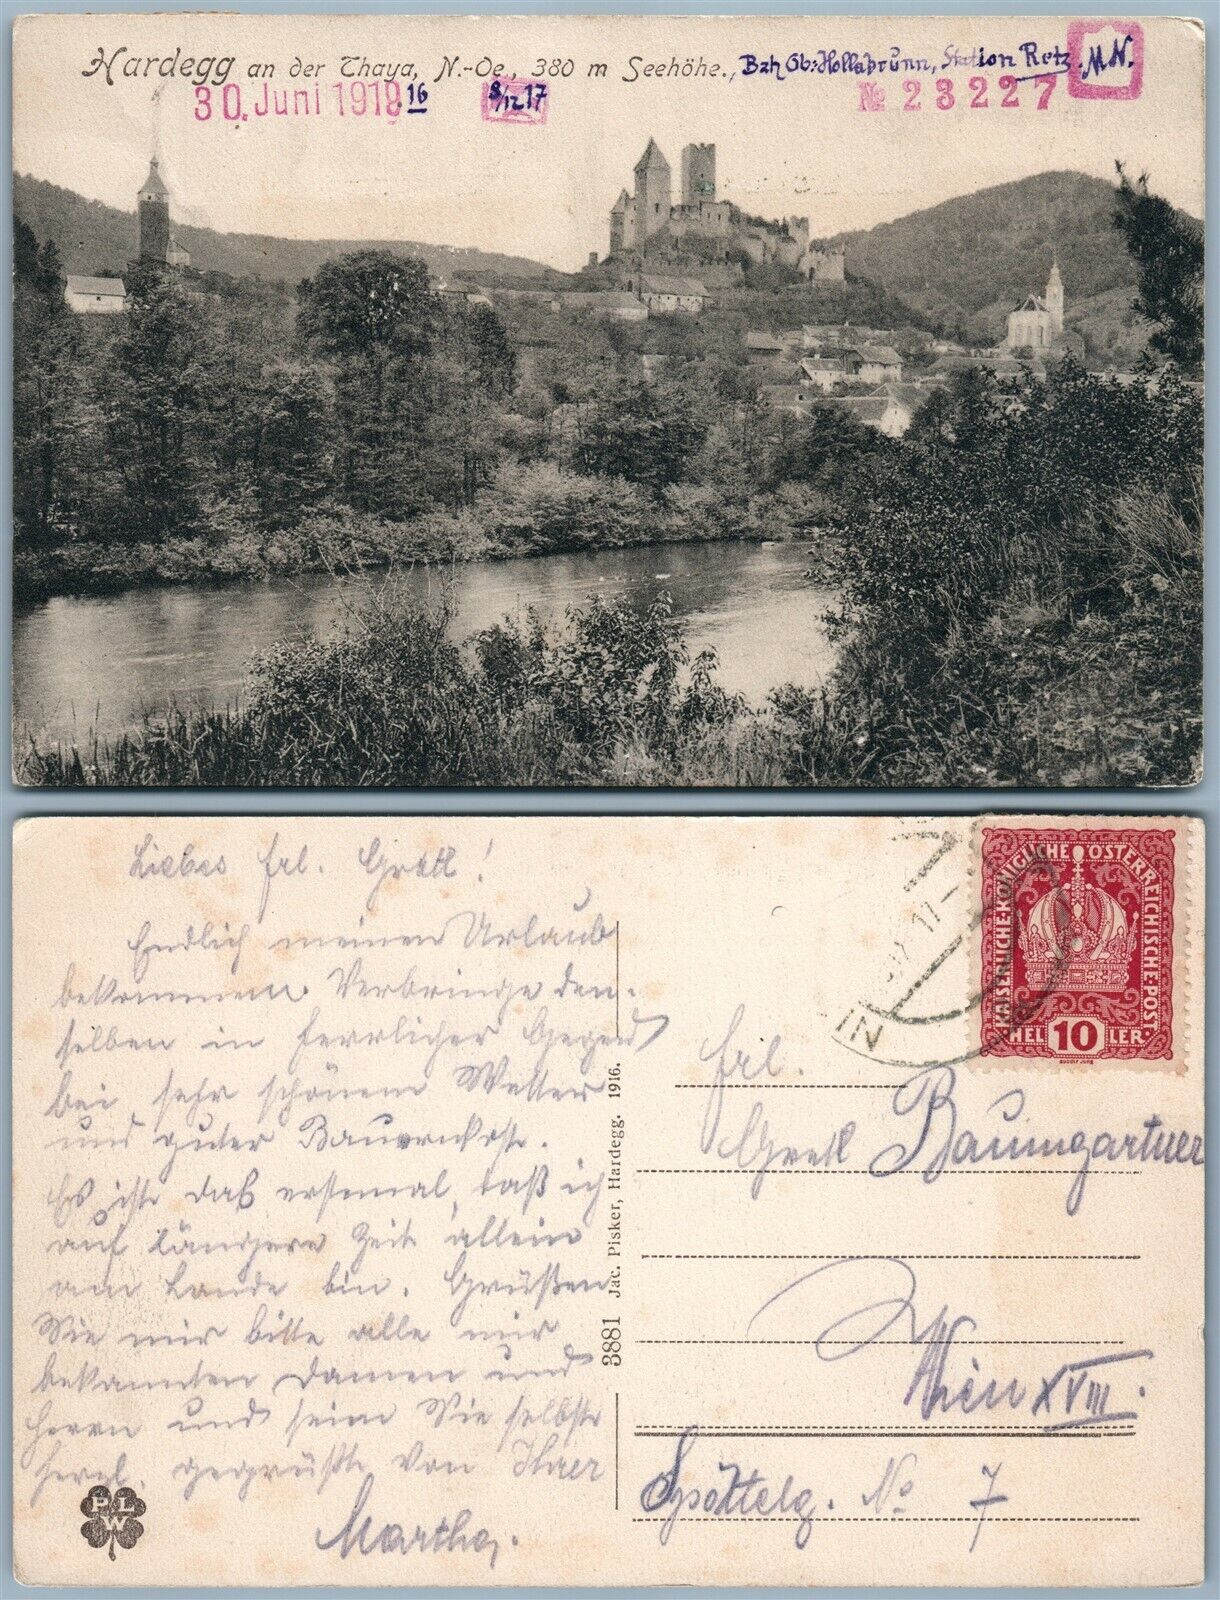 Hardegg an der Thaya, N.-Oe., 380 m Seehöhe., Bzh Gb: Hollabrunn, Station Retz. M.N.
30. Juni 1918 16 8/12 17 № 23227
Liebes Frl. Gretl!
Endlich meinen Urlaub
bekommen. Verbringe den-
selben in herrlicher Gegend
bei sehr schönem Wetter
und guter Bauernkost.
Es ist das erstemal, daß ich
auf längere Zeit allein
am Lande bin. Grüßen
Sie mir bitte alle mir
bekannten Damen und
Herrn und seien Sie selbst
herzl. gegrüßt von Ihrer
Martha.
PLW
3881 Jac. Pisker, Hardegg. 1916.
KAISERLICHE·KÖNIGLICHE ÖSTERREICHISCHE·POST
HEL 10 LER
17
Frl.
Gretl Baumgartner
Wien XVIII.
Spöttelg. No 7